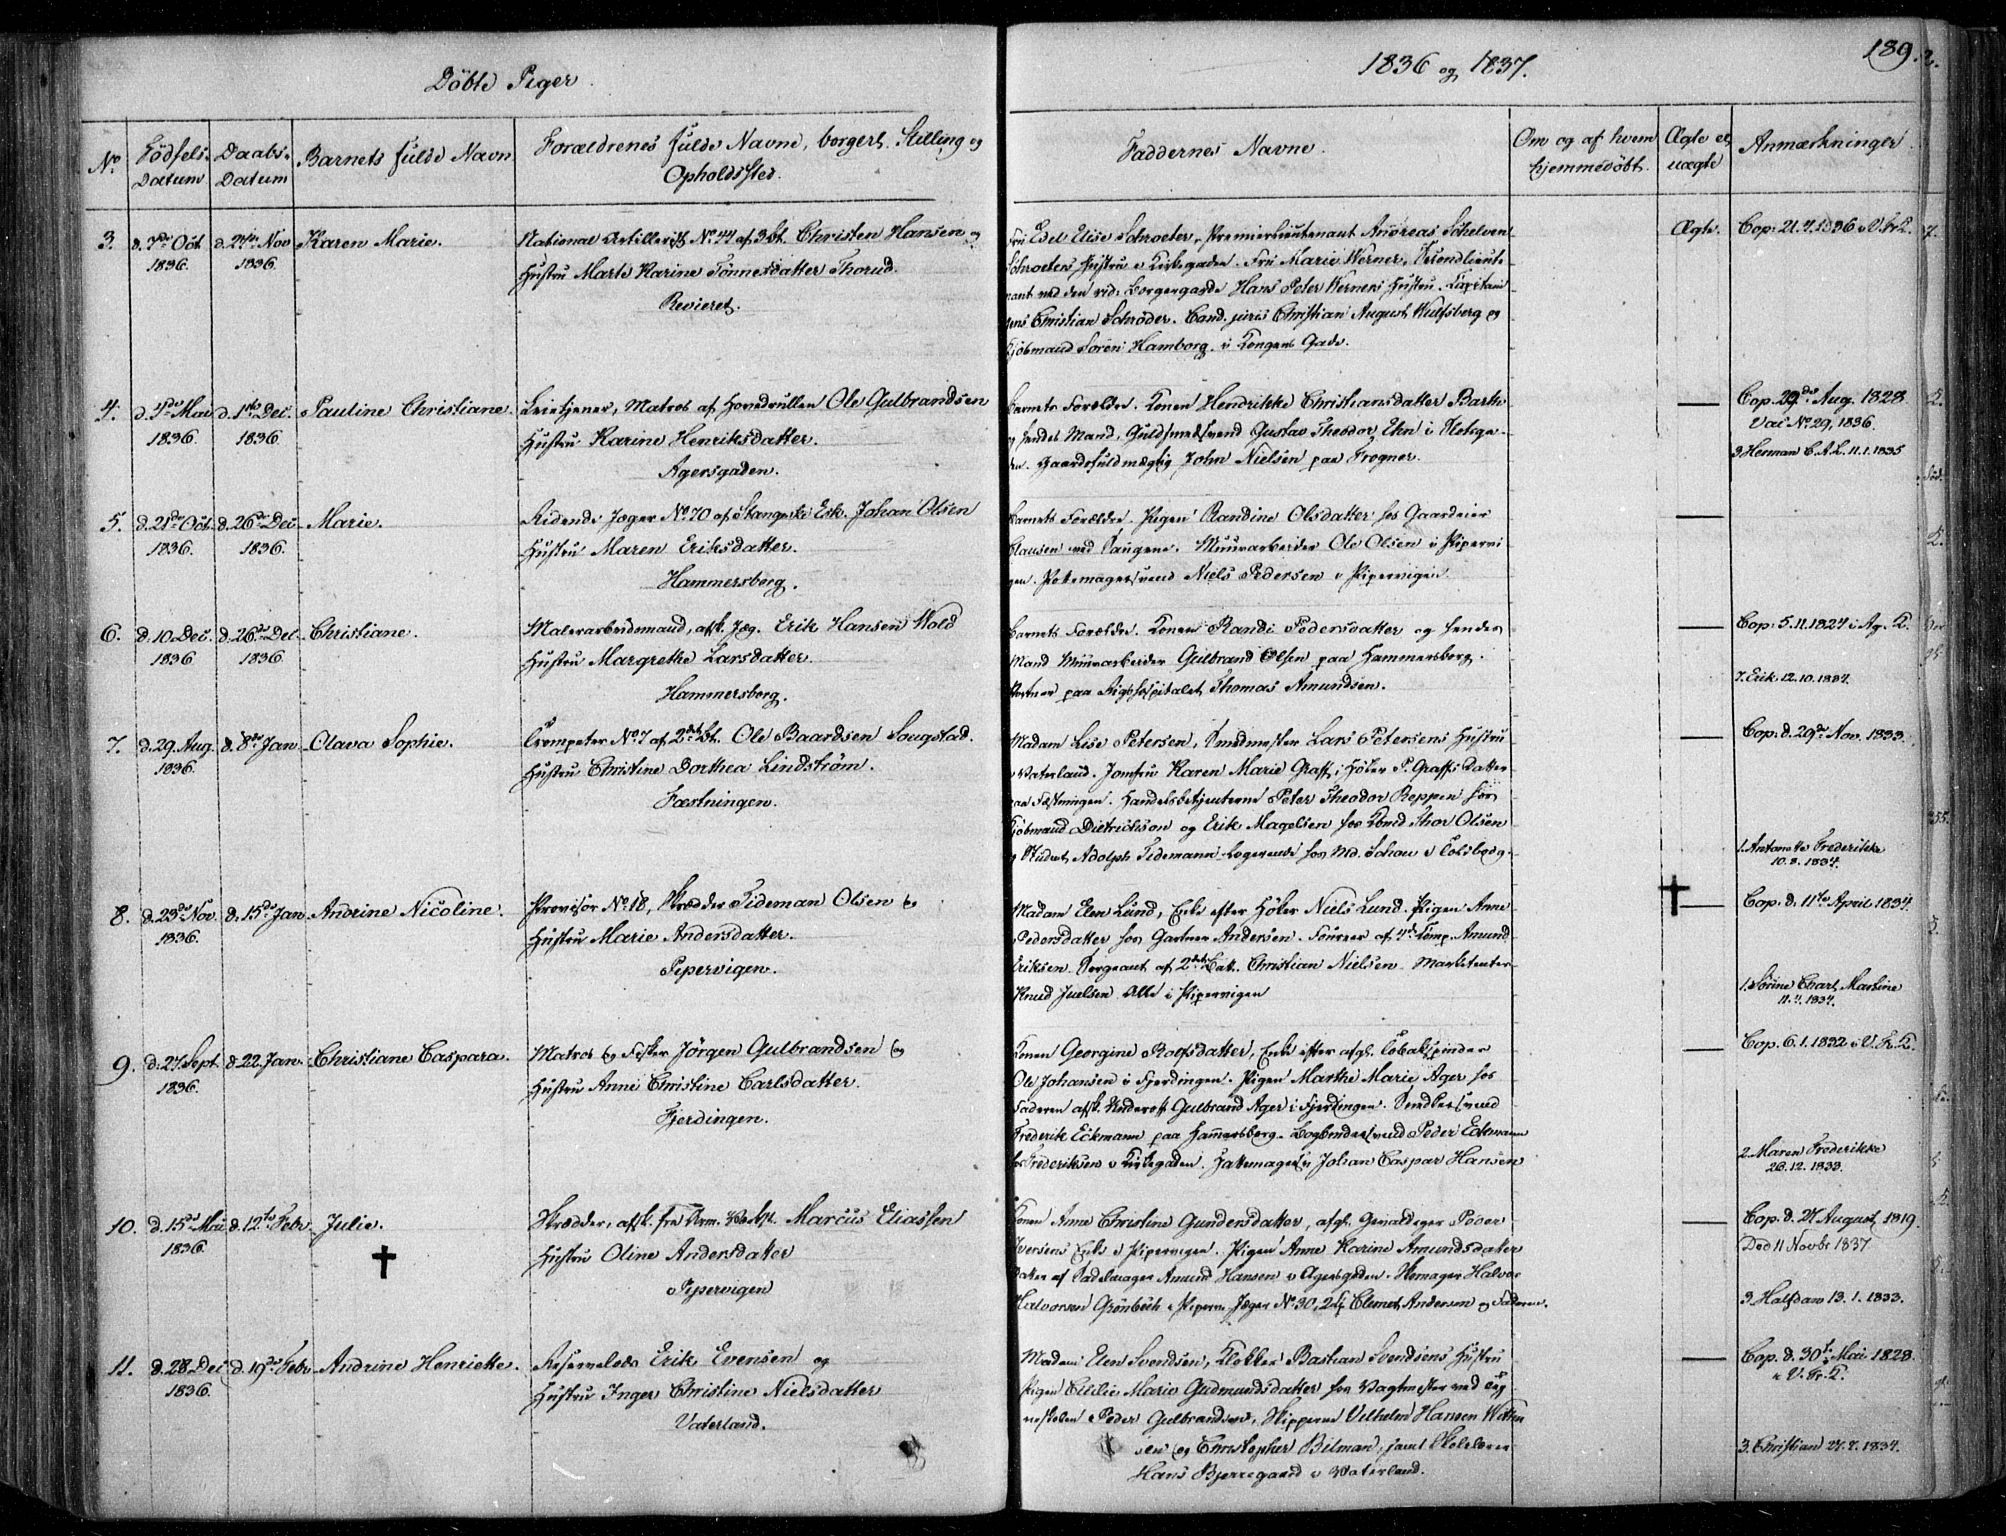 Döbte Piger.
1836 og 1837.
189.
No.
Födsels-
Datum
Daabs-
Datum
Barnets fulde Navn
Forældrenes fulde Navne, borgerl. Stilling og
Opholdssted.
Faddernes Navne.
Om og af hvem
hjemmedöbt.
Ægte el.
uægte
Anmærkninger.
3. d. 7de Oct. d. 27de Nov. Karen Marie.
1836. 1836.
National Artillerist No. 44 af 3 Bt. Christen Hansen og
Hustru Marte Karine Tönnesdatter Thorud.
Revieret.
Fru Edel Elise Schroeter, Premierlieutenant Andreas Schelven
Schroeters Hustru i Kirkegaden. Fru Marie Werner, Secondlieute-
nant ved den rid: Borgergarde Hans Peter Werners Hustru. Kapitain
Jens Christian Schröder. Cand. juris Christian August Wulfsberg og
Kjöbmand Sören Hamborg i Kongens Gade.
Ægte.
Cop: 21.7.1836 i V. Fr. K.
4. d. 4de Mai d. 1ste Dec. Pauline Christiane.
1836. 1836.
Leietjener, Matros af Hovedrullen Ole Gulbrandsen
Hustru Karine Henriksdatter.
Agersgaden.
Barnets Forældre. Konen Hendrikke Christiansdatter Barth
og hendes Mand, Guldsmedsvend Gustav Theodor Ehn i Slotsga-
den. Gaardsfuldmægtig John Nielsen paa Frogner.
Cop. 29de Aug. 1828
Vac No. 29, 1836.
3. Herman C. A. L. 11.1.1835
5. d. 21de Oct. d. 26de Dec. Marie.
1836. 1836.
Ridende Jæger No. 70 af Stangeske Esk. Johan Olsen
Hustru Maren Eriksdatter.
Hammersborg.
Barnets Forældre. Pigen Randine Olsdatter hos Gaardeier
Clausen ved Saugene. Muurarbeider Ole Olsen i Pipervi-
gen. Pottemagersvend Niels Pedersen i Pipervigen.
6. d. 10 Dec. d. 26de Dec. Christiane.
1836 1836.
Malerarbeidsmand, afsk. Jæg. Erik Hansen Wold
Hustru Margrethe Larsdatter.
Hammersborg.
Barnets Forældre. Konen Randi Pedersdatter og hendes
Mand Muurarbeider Gulbrand Olsen paa Hammersborg.
Portner paa Rigshospitalet Thomas Amundsen.
Cop: 5.11.1827 i Ag. K.
7. Erik. 12.10.1834.
7. d. 29. Aug. d. 8de Jan. Olava Sophie.
1836.
Trompeter No. 7 af 2det Bt. Ole Baardsen Saugstad.
Hustru Christine Dorthea Lindström.
Fæstningen.
Madam Lise Petersen, Smedmester Lars Petersens Hustru
i Vaterland. Jomfru Karen Marie Graff, Höker P. Graffs Datter
paa Fæstningen. Handelsbetjenterne Peter Theodor Reppen hos
Kjöbmand Dietrichson og Erik Magelsen hos Kbmd Thor Olsen
og Student Adolph Tidemann Logerende hos Md. Schou i Toldbodg.
Cop: d. 29de Nov. 1833.
1. Antonette Frederikke
10.3.1834.
8. d. 23de Nov. d. 15de Jan. Andrine Nicoline.
1836.
Provisor No. 18, Skrædder Tideman Olsen og
Hustru Marie Andersdatter.
Pipervigen.
Madam Elen Lund, Enke efter Höker Niels Lund. Pigen Anne
Pedersdatter hos Gartner Andersen. Foureer af 4de Komp. Amund
Eriksen. Sergeant af 2det Batt. Christian Nielsen. Marketenter
Knud Juelsen. Alle i Pipervigen
Cop. d. 11te April 1834.
1. Sörine Charl. Martine
11.4.1834.
9. d. 27. Sept. d. 22. Jan. Christiane Caspara.
1836.
Matros og Fisker Jörgen Gulbrandsen og
Hustru Anne Christine Carlsdatter.
Fjerdingen.
Konen Georgine Rolfsdatter, Enke efter afgl. Tobakspinder
Ole Johansen i Fjerdingen. Pigen Marthe Marie Ager hos
Faderen afsk. Underoff. Gulbrand Ager i Fjerdingen. Smedsvend
Frederik Eckmann paa Hammersborg. Bogbindersvend Peder Eckmann
hos Frederiksen i Kirkegaden. Hattemagersv. Johan Caspar Hansen
Cop. 6.1.1832 i V. Fr. K.
2. Maren Frederikke
26.12.1833.
10. d. 15de Mai d. 12te Febr. Julie.
1836.
Skrædder, afsk. fra Arm. Marcus Eliassen
Hustru Oline Andersdatter
Pipervigen
Konen Anne Christine Gundersdatter, afgl. Gevaldiger Peder
Iversens Enke i Pipervigen. Pigen Anne Karine Amundsdatter
Datter af Sadelmager Amund Hansen i Agersgaden. Skomager Halvor
Halvorsen Grönbech i Piperv. Jæger No. 30, Clemet Andersen og Faderen.
Cop. d. 27 August 1819.
Död 11 Novbr 1837
3. Halfdan 13.1.1833.
11. d. 28. Dec. d. 19de Febr. Andrine Henriette.
1836.
Erik Evensen og
Hustru Inger Christine Nielsdatter
Vaterland.
Madam Elen Svendsen, Klokker Bastian Svendsens Hustru
Pigen Cicilie Marie Gudmundsdatter hos Vagtmester ved Teg-
neskolen Peder Gulbrandsen, Skipperne Vilhelm Hansen
og Christopher Bilman, samt Skolelærer
Hans Bjerregaard i Vaterland.
Cop. d. 30te Mai 1828.
i V. Fr. K.
3. Christian 27.7.1834.